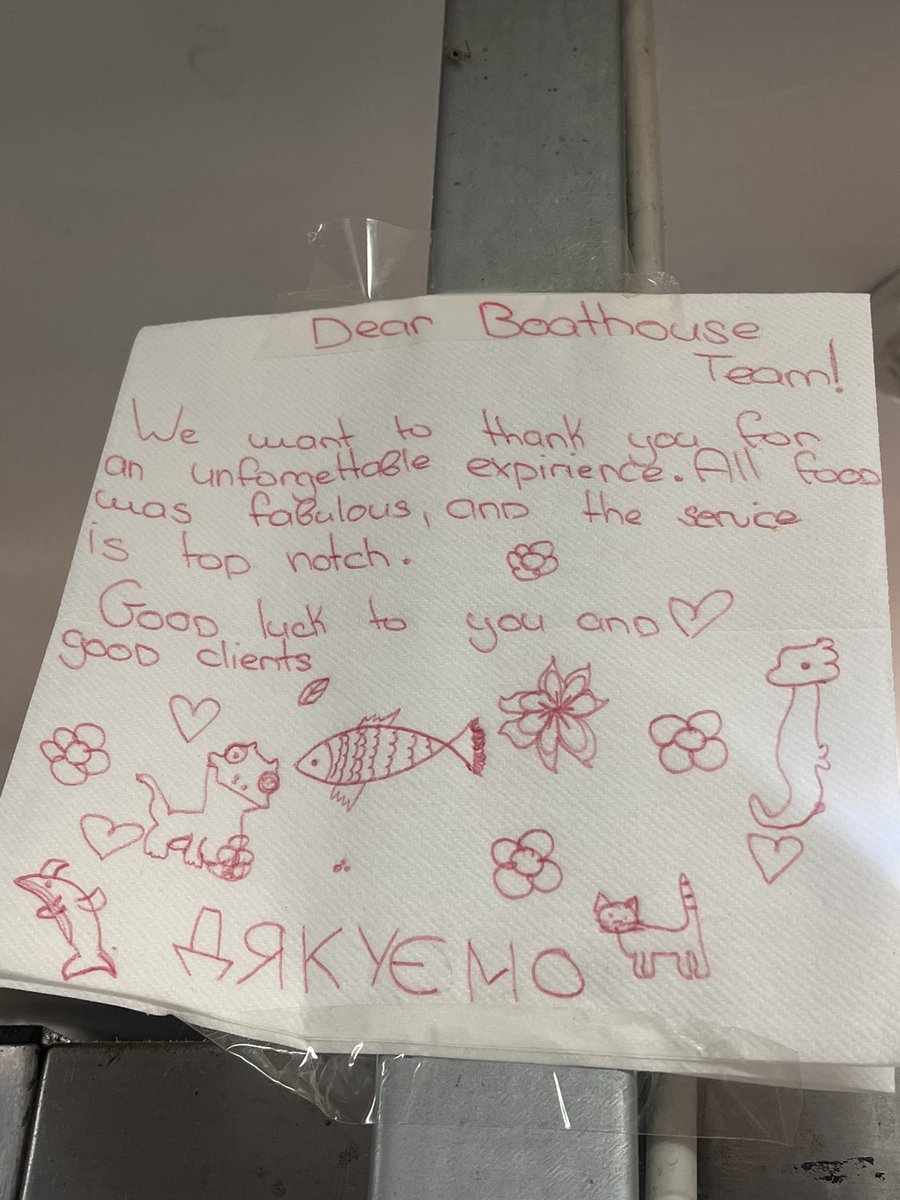 Dear Boathouse
Team!
We want to thank you for
an unforgettable expirience. All food
was fabulous, and the service
is top notch.
Good luck to you and
good clients
ДЯКУЄМО